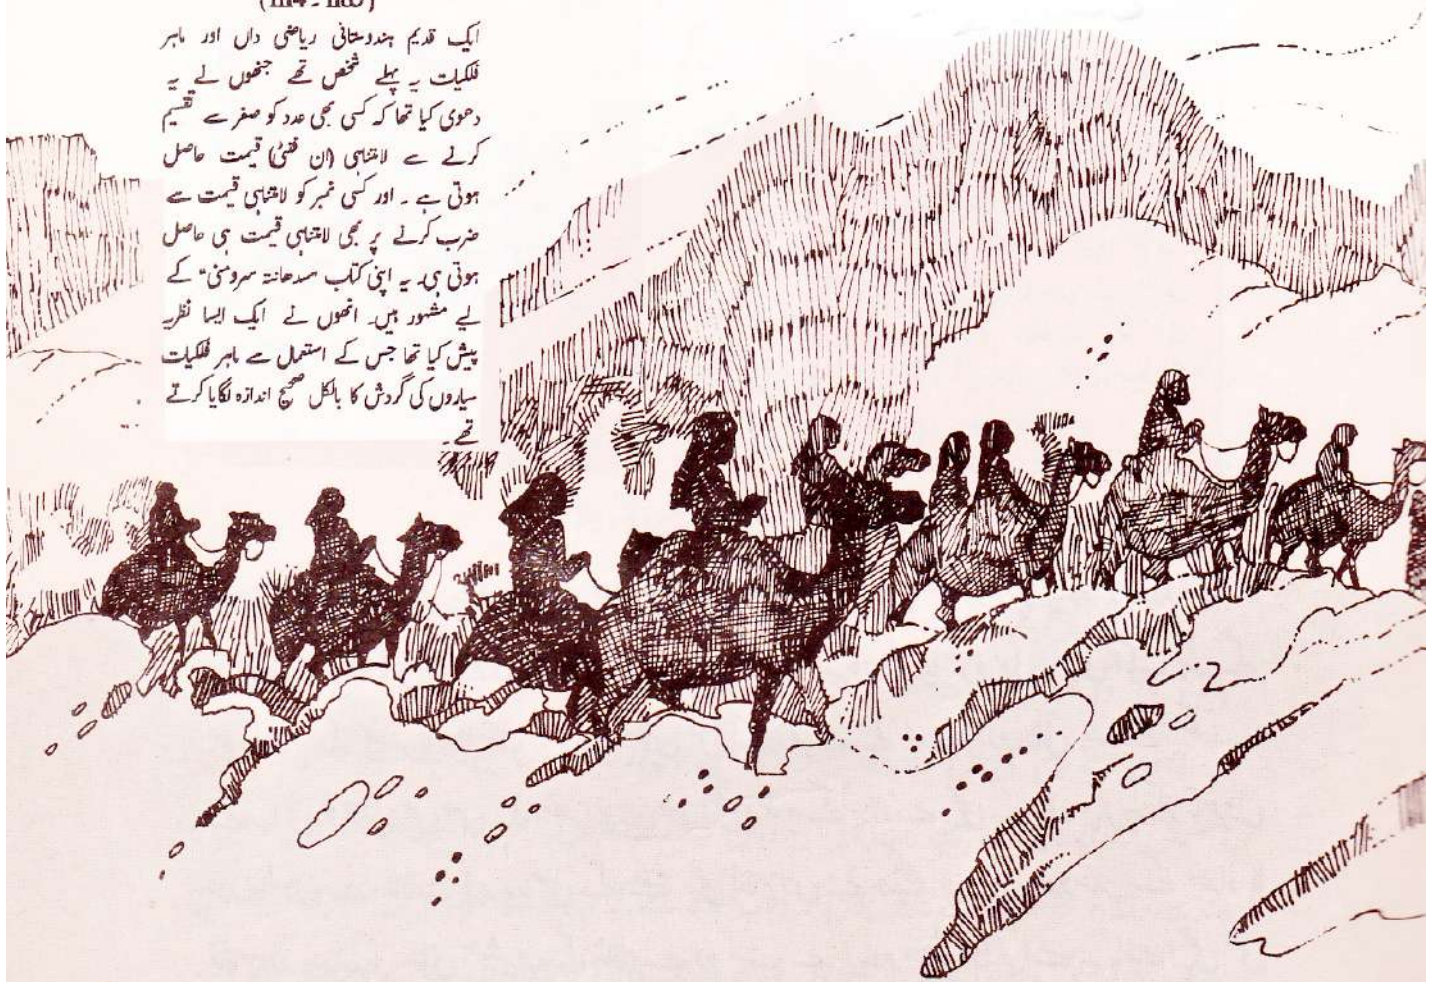 (1114 - 1185)
ایک قدیم ہندوستانی ریاضی داں اور ماہر
فلکیات یہ پہلے شخص تھے جنھوں نے یہ
دعوی کیا تھا کہ کسی بھی عدد کو صفر سے تقسیم
کرنے سے لامتناہی (ان فنٹی) قیمت حاصل
ہوتی ہے ۔ اور کسی نمبر کو لامتناہی قیمت سے
ضرب کرنے پر بھی لامتناہی قیمت ہی حاصل
ہوتی ہی۔ یہ اپنی کتاب "سدھانتہ سرومنی" کے
لیے مشہور ہیں۔ انھوں نے ایک ایسا نظریہ
پیش کیا تھا جس کے استعمل سے ماہر فلکیات
سیاروں کی گردش کا بالکل صحیح اندازہ لگایا کرتے
تھے۔